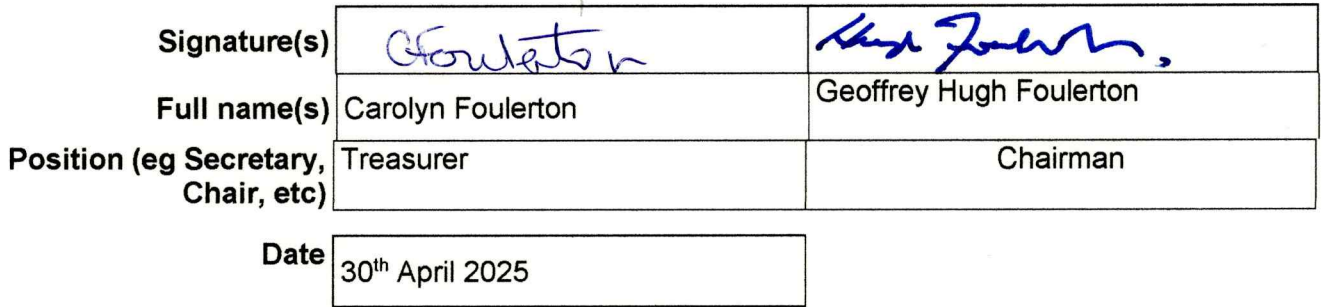 Signature(s) CFoulerton Hugh Foulerton
Full name(s) Carolyn Foulerton Geoffrey Hugh Foulerton
Position (eg Secretary, Treasurer Chairman
Chair, etc)
Date 30th April 2025